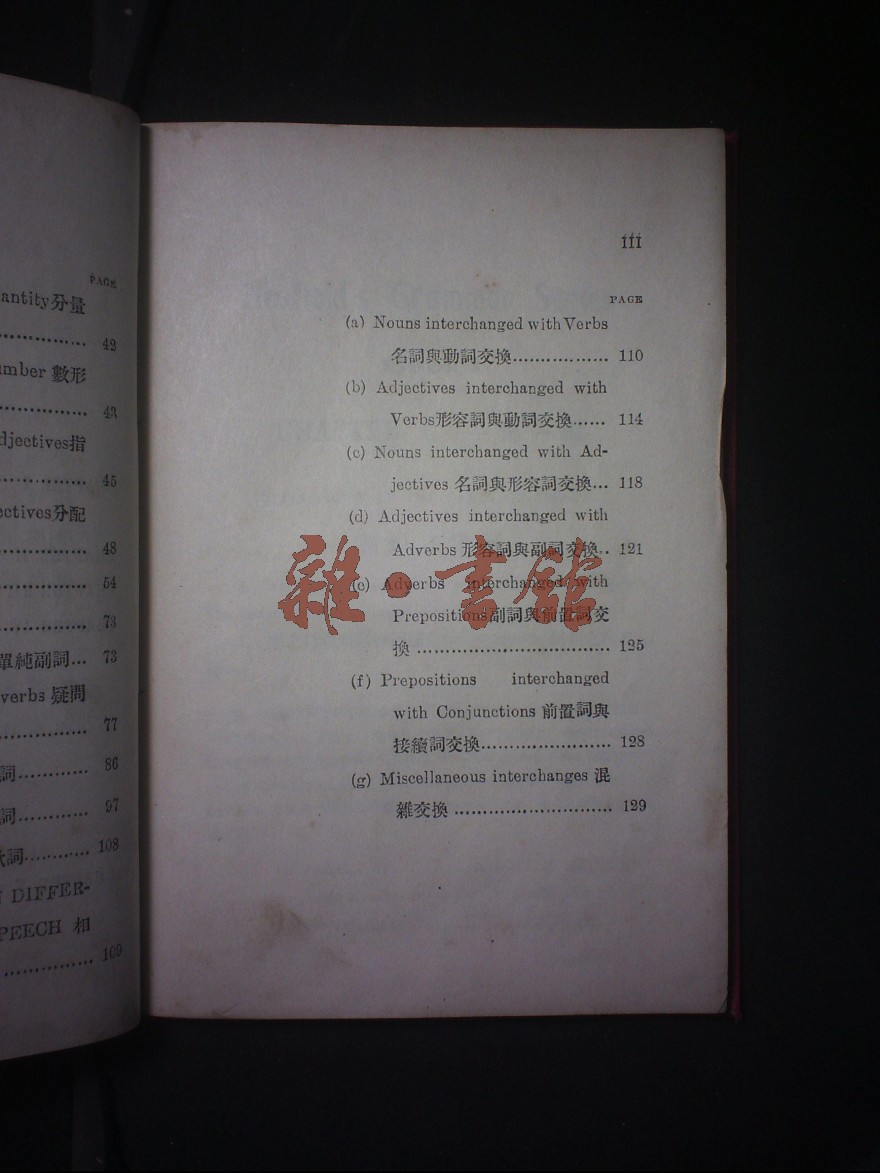 PAGE
antity分量
42
mber 數形
43
djectives指
45
ectives分配
48
54
73
單純副詞... 73
verbs 疑問
77
詞............ 86
詞............ 97
詞............ 108
DIFFER-
PEECH 相
................ 109
iii
PAGE
(a) Nouns interchanged with Verbs
名詞與動詞交換.................. 110
(b) Adjectives interchanged with
Verbs形容詞與動詞交換...... 114
(c) Nouns interchanged with Ad-
jectives 名詞與形容詞交換... 118
(d) Adjectives interchanged with
Adverbs 形容詞與副詞交換.. 121
(e) Adverbs interchanged with
Prepositions副詞與前置詞交
換 ................................... 125
(f) Prepositions interchanged
with Conjunctions 前置詞與
接續詞交換....................... 128
(g) Miscellaneous interchanges 混
雜交換 ............................ 129
雜·書館